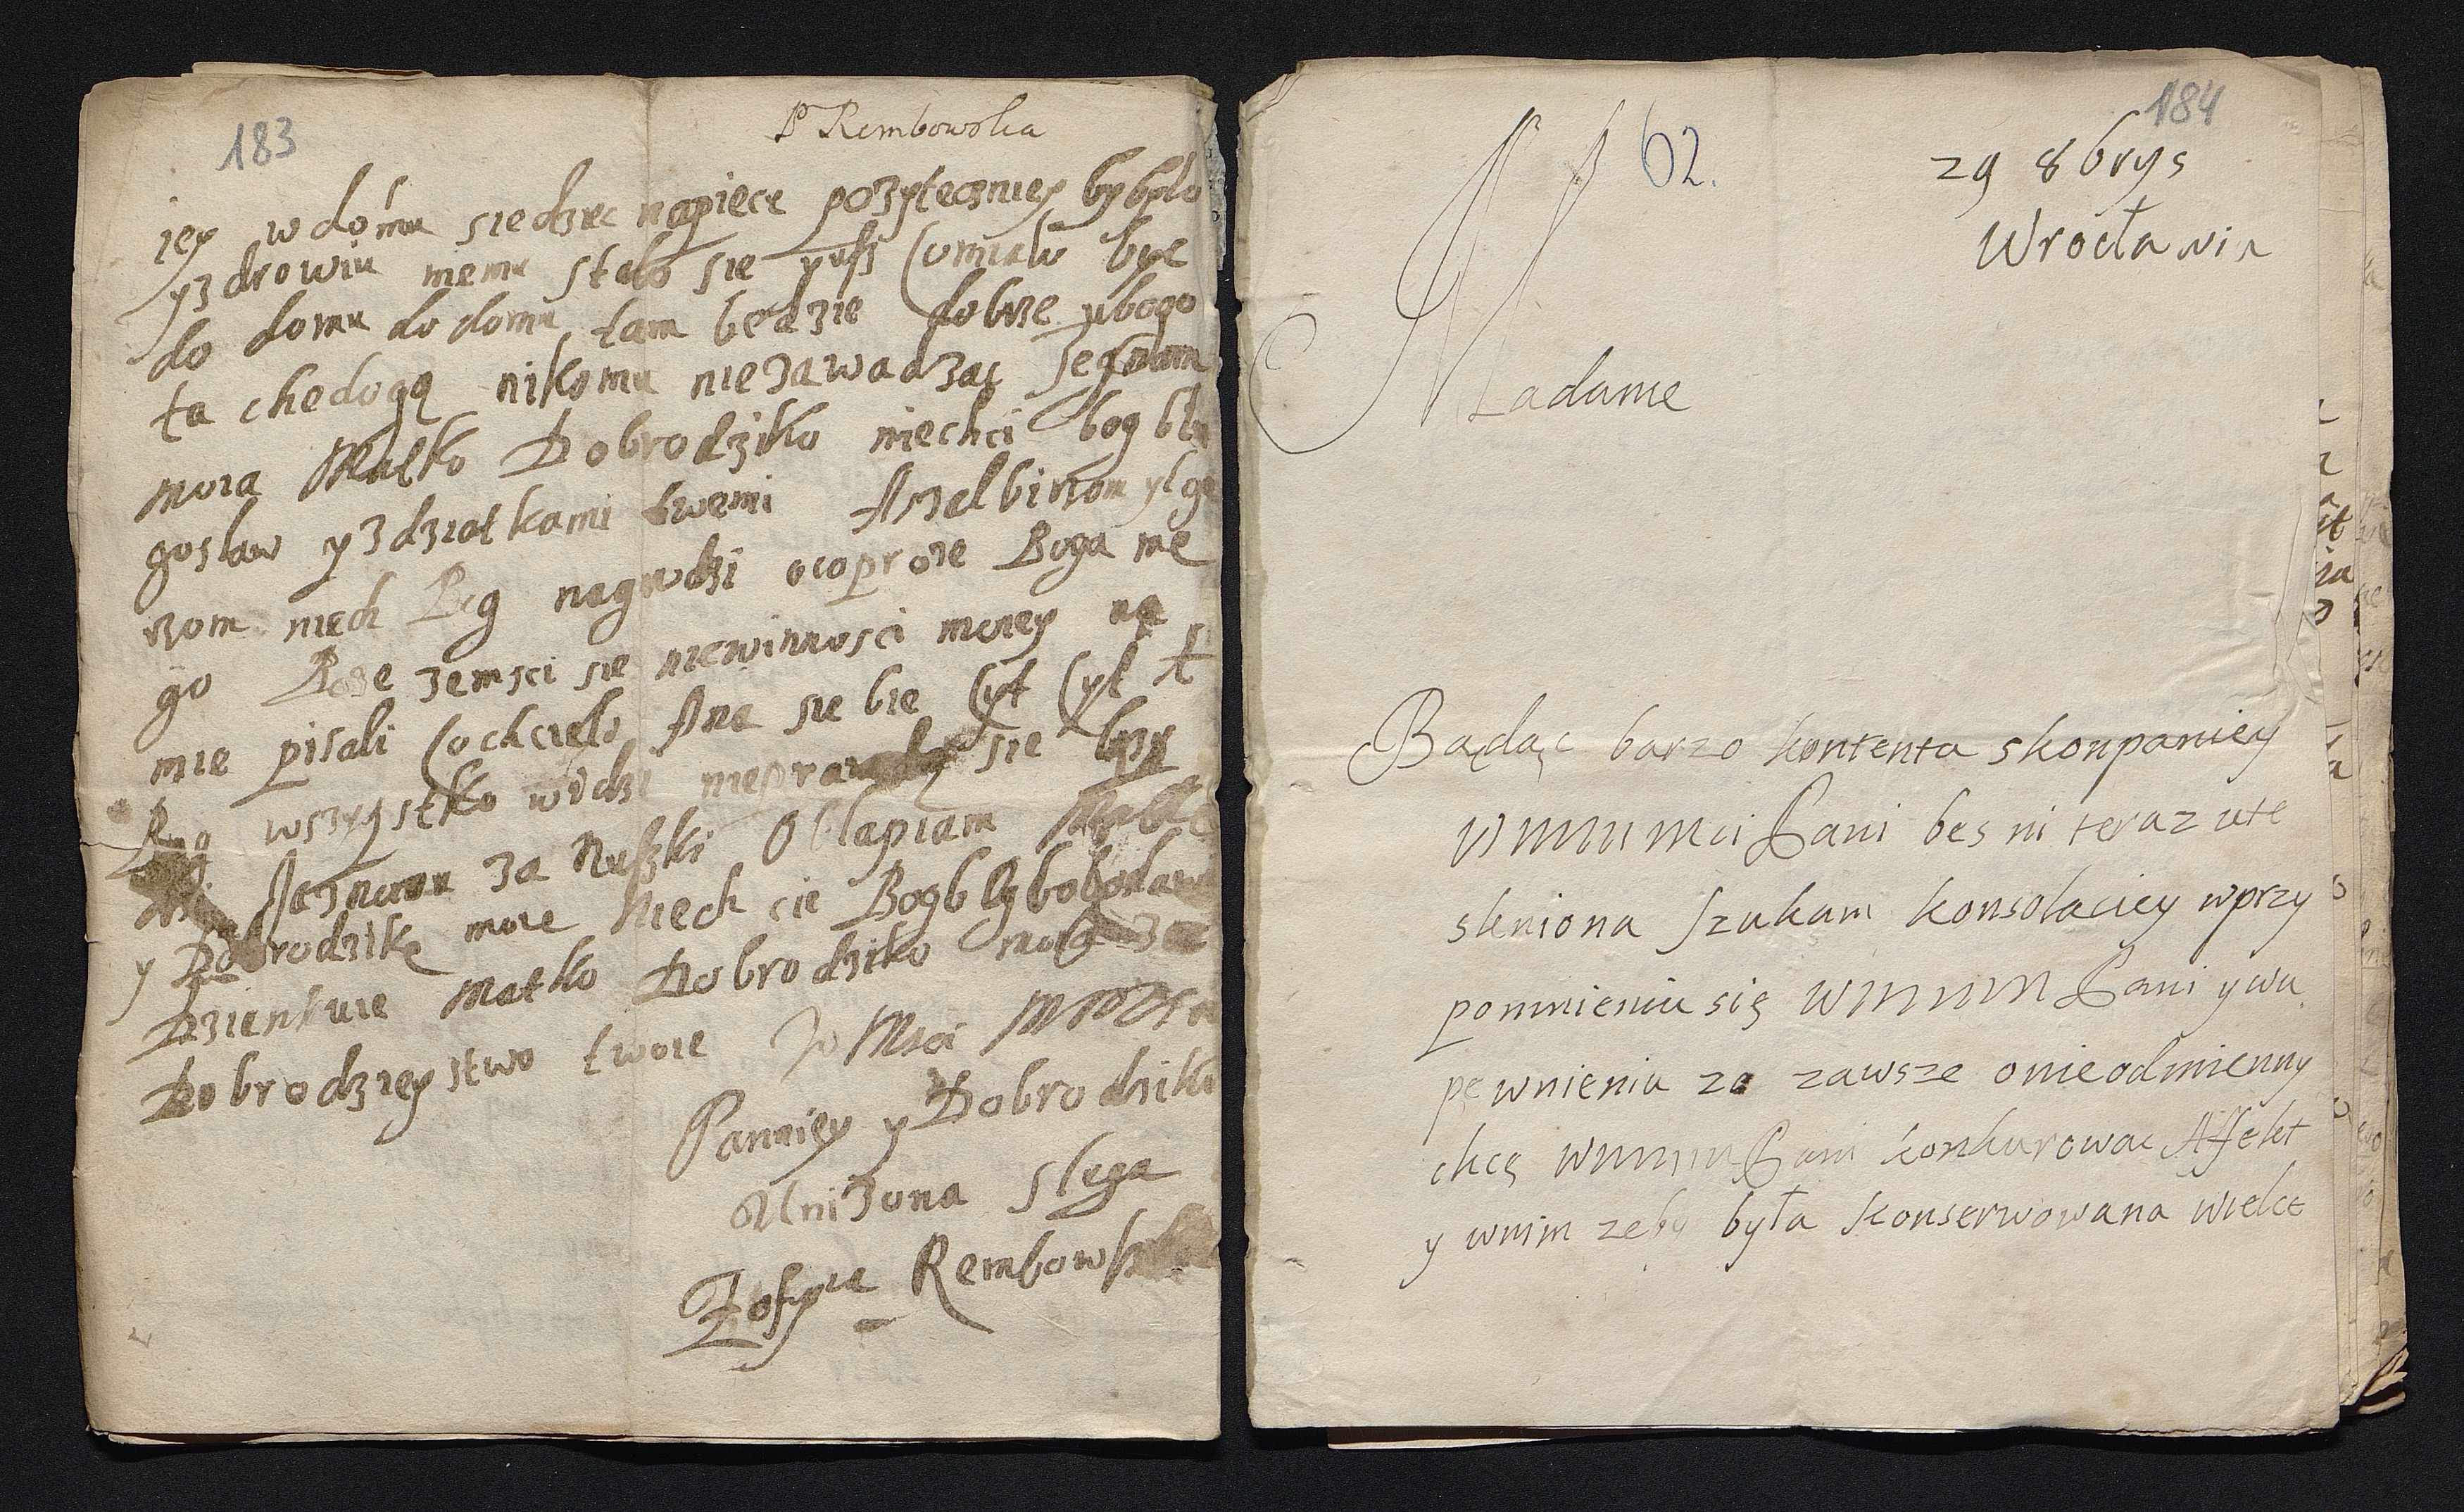 183
P Rembowska
iey w domu siedziec napiece pozyteczniey bybyło
yzdrowiu memu stało sie yusz comiało byc
do domu do domu tam bedzie dobrze ubogo
ta chedogą nikomu niezawadzać Zegnam
moia Matko Dobrodziko niechci bog bło
gosław yzdziatkami twemi
rzom niech Bog nagrodzi ocoprosze Boga me
go Boze zemsci sie niewinnosci moiey na
mie pisali cochcieło Ana siebie
Bog wszystko widzi nieprawdą sie
za Nuszki Obłapiam Matke
y Dobrodzike moie Niech cie Bog
Dzienkuie Matko Dobrodziko moia za
Dobrodzieystwo twoie Jo Msci
Panniey y Dobrodziki
Unizona Sługa
Zofyia Rembowska
184
62.
29 8brys
Wrocławia
Madame
Bądąc barzo kontenta skompaniey
WMMMci Pani bes ni teraz ute
skniona szukam konsolaciey wprzy
pomnieniu się WMMM Pani ywu
pewnieniu ze zawsze onieodmienny
chcę WMMM Pani konkurowac Affekt
y wnim zeby była konserwowana wielce